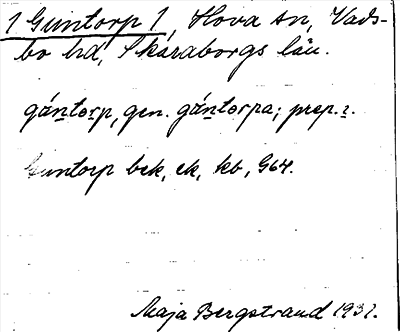 1 Guntorp 1, Hova sn, Vads-
bo hd, Skaraborgs län.
gántorp, gen. gántorpa; prep. i.
Guntorp bek, ek, kb, G64.
Maja Bergstrand 1931.